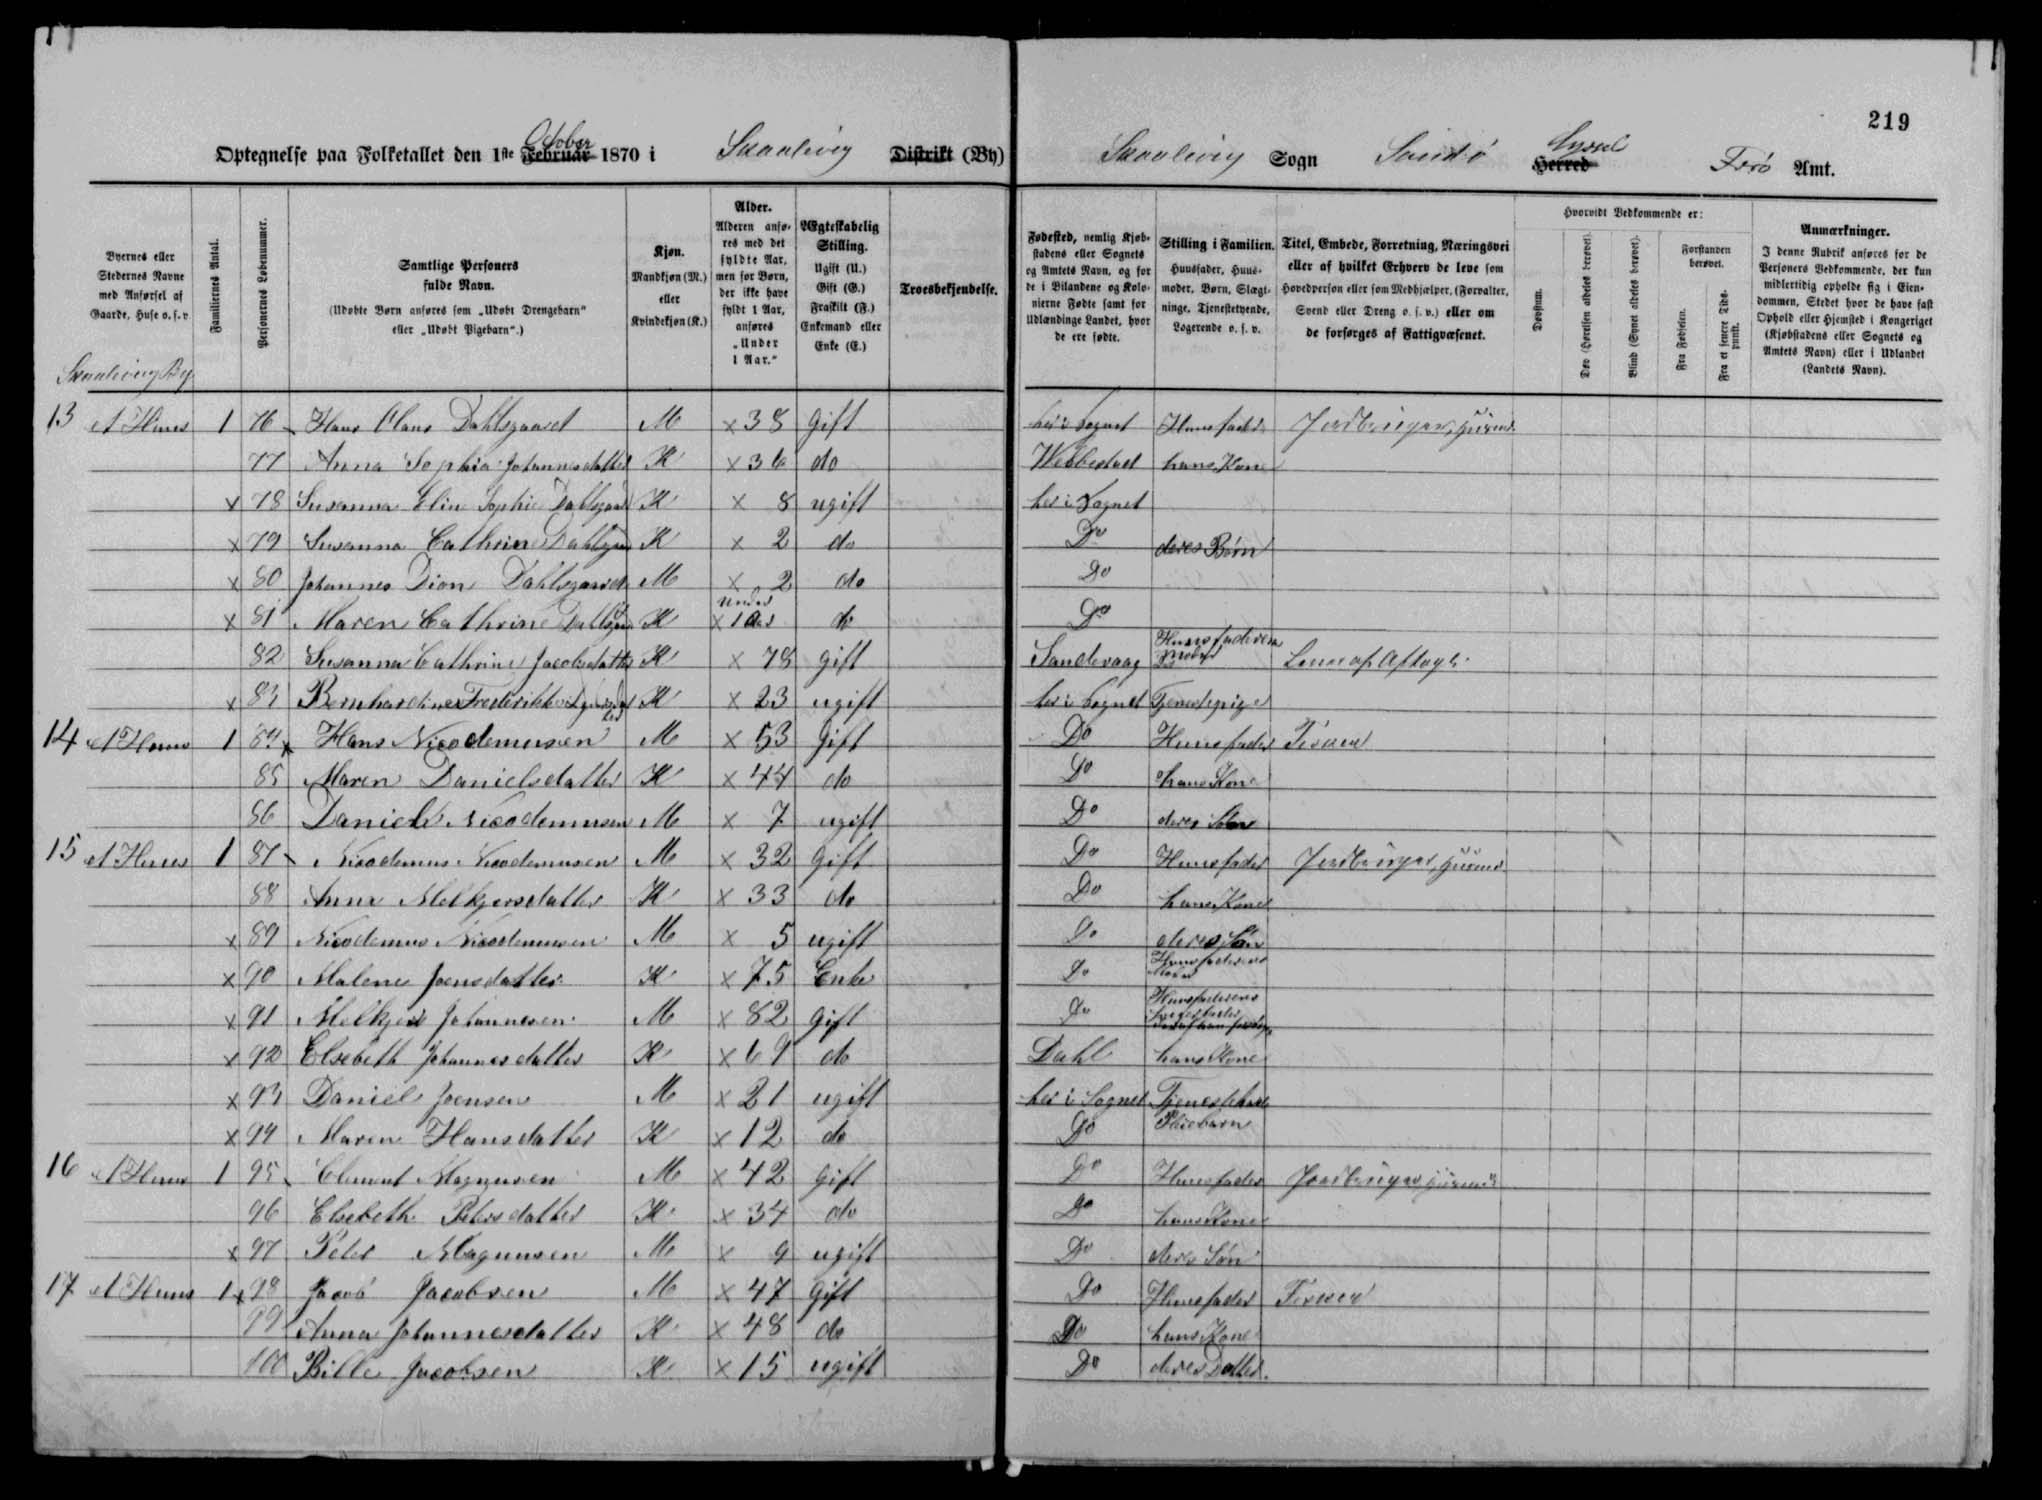 219
Optegnelse paa Folketallet den 1ste October Februar 1870 i Skaalevig Distrikt (By) Skaalevig Sogn Sandø Syssel Herred Færø Amt.
Byernes eller Stedernes Navne med Anførsel af Gaarde, Huse o. s. v.
Familiernes Antal.
Personernes Løbenummer.
Samtlige Personers fulde Navn.
(Udøbte Børn anføres som „Udøbt Drengebarn“ eller „Udøbt Pigebarn“.)
Kjøn.
Mandkjøn (M.) eller Kvindekjøn (K.)
Alder.
Alderen anføres med det fyldte Aar, men for Børn, der ikke have fyldt 1 Aar, anføres „Under 1 Aar.“
Ægteskabelig Stilling.
Ugift (U.) Gift (G.) Fraskilt (F.) Enkemand eller Enke (E.)
Troesbekjendelse.
Fødested, nemlig Kjøbstadens eller Sognets og Amtets Navn, og for de i Bilandene og Kolonierne Fødte samt for Udlændinge Landet, hvor de ere fødte.
Stilling i Familien.
Huusfader, Huusmoder, Børn, Slægtninge, Tjenestetyende, Logerende o. s. v.
Titel, Embede, Forretning, Næringsvei eller af hvilket Erhverv de leve som Hovedperson eller som Medhjælper, (Forvalter, Svend eller Dreng o. s. v.) eller om de forsørges af Fattigvæsenet.
Hvorvidt Vedkommende er:
Døvstum.
Døv (Hørelsen aldeles berøvet).
Blind (Synet aldeles berøvet).
Forstanden berøvet.
Fra Fødselen.
Fra et senere Tidspunkt.
Anmærkninger.
I denne Rubrik anføres for de Personers Vedkommende, der kun midlertidig opholde sig i Eiendommen, Stedet hvor de have fast Ophold eller Hjemsted i Kongeriget (Kjøbstadens eller Sognets og Amtets Navn) eller i Udlandet (Landets Navn).
Skaalevig By
13 et Huus 1 76 Hans Claus Dahlsgaard M × 38 gift her i Sognet Huusfader Jordbruger,
77 Anna Sophia Johannesdatter K × 36 do hans Kone
× 78 Susanna Elin Sophie Dahlsgaard K × 8 ugift her i Sognet
× 79 Susanna Cathrine Dahlsgaard K × 2 do Do deres Børn
× 80 Johannes Dion Dahlsgaard M × 2 do Do
× 81 Maren Cathrine Dahlsgaard K × under 1 Aar do Do
82 Susanna Cathrine Jacobsdatter K × 78 gift Sandevaag Huusfaderens Moder Lever af Aftægt
× 83 Bernhardine Frederikke K × 23 ugift her i Sognet Tjenestepige
14 et Huus 1 84 × Hans Nicodemusen M × 53 gift Do Huusfader Fisker
85 Maren Danielsdatter K × 44 do Do hans Kone
86 Daniel Nicodemusen M × 7 ugift Do deres Søn
15 et Huus 1 87 Nicodemus Nicodemusen M × 32 gift Do Huusfader Jordbruger,
88 Anna Melkjersdatter K × 33 do Do hans Kone
× 89 Nicodemus Nicodemusen M × 5 ugift Do deres Søn
× 90 Malene Joensdatter K × 75 Enke Do Huusfaderens Moder
× 91 Melkjer Johannesen M × 82 gift Do Huusfaderens
× 92 Elsebeth Johannesdatter K × 69 do Dahl hans Kone
× 93 Daniel Joensen M × 21 ugift her i Sognet Tjenestekarl
× 94 Maren Hansdatter K × 12 do Do Pleiebarn
16 et Huus 1 95 Clement Magnusen M × 42 gift Do Huusfader Jordbruger,
96 Elsebeth Petersdatter K × 34 do Do hans Kone
× 97 Peter Magnusen M × 9 ugift Do deres Søn
17 et Huus 1 × 98 Jacob Jacobsen M × 47 gift Do Huusfader Fisker
99 Anna Johannesdatter K × 48 do Do hans Kone
100 Bille Jacobsen K × 15 ugift Do deres Datter.